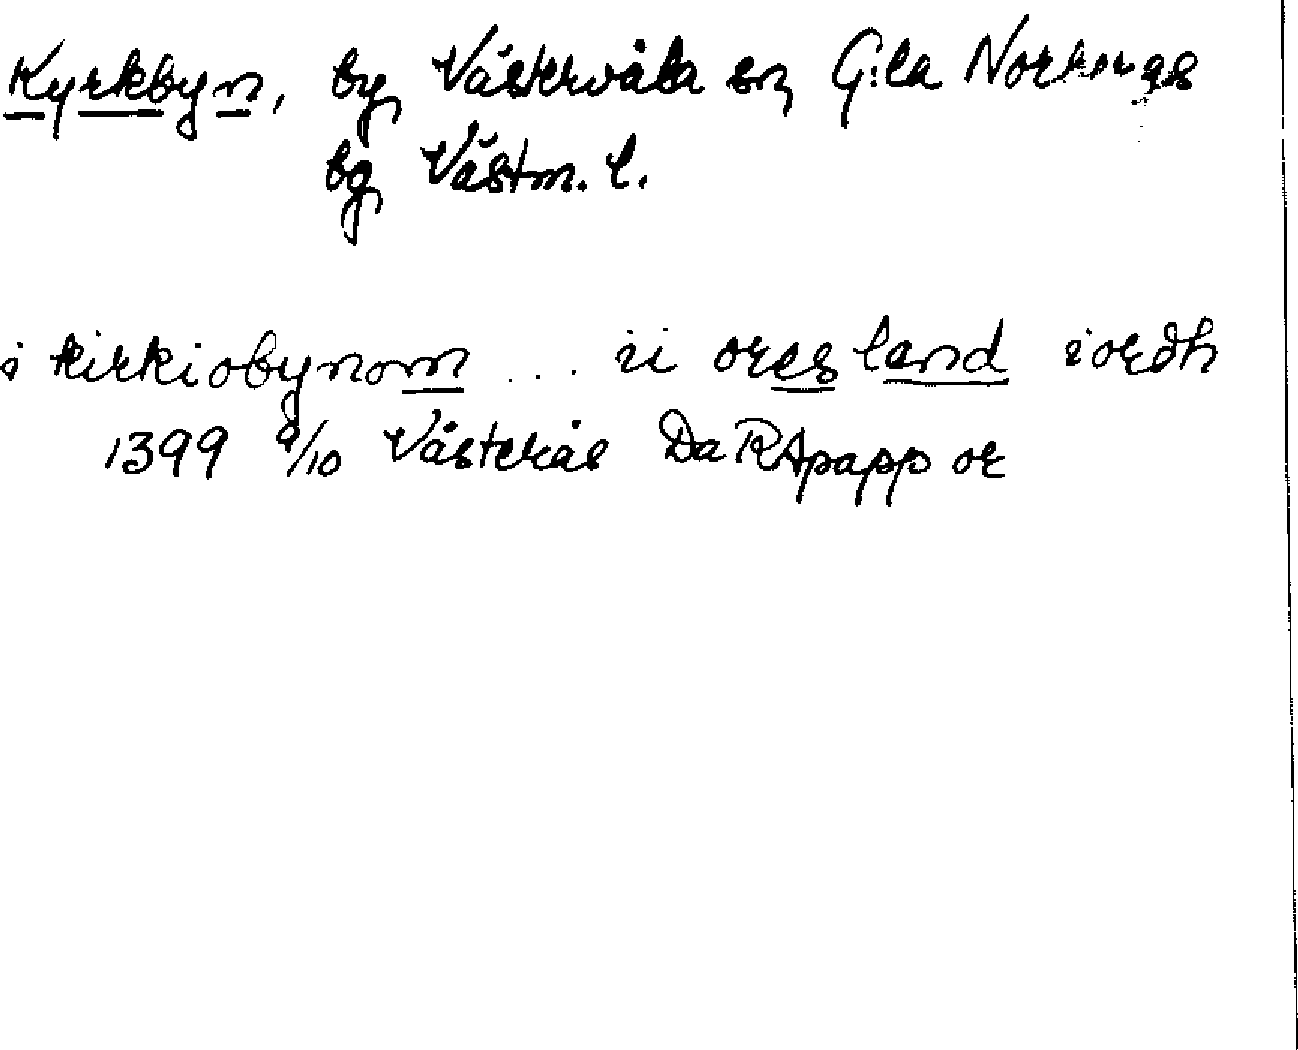 Kyrkbyn, by Västervåla sn G:la Norbergs
bg Västm. l.
i kirkiobynom ... ii ores land iordh
1399 9/10 Västerås Da RApapp or